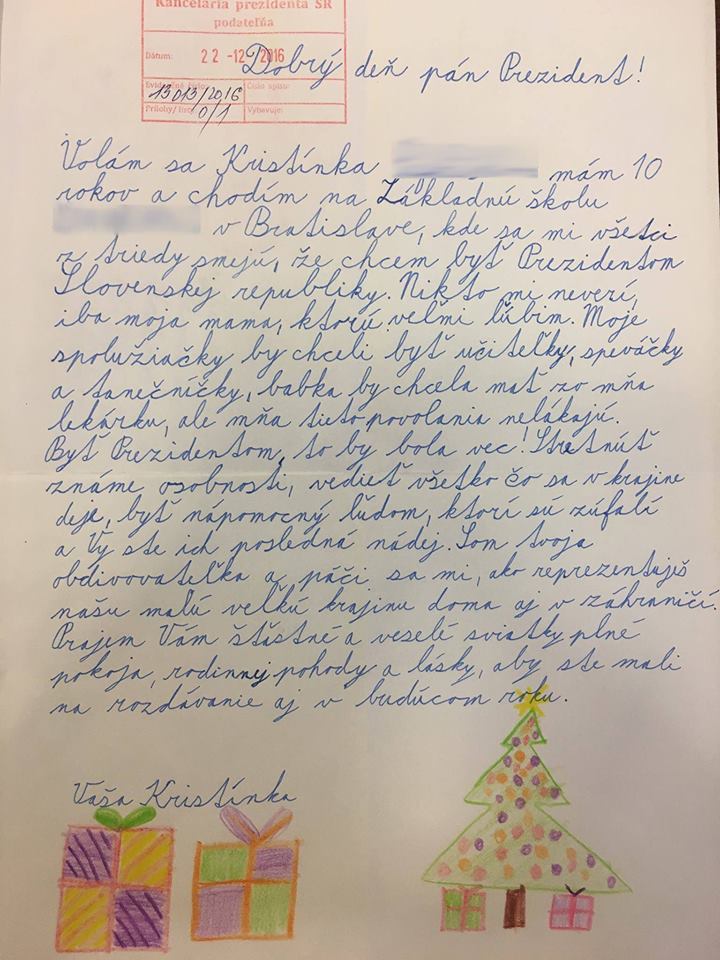 Kancelária prezidenta SR
podateľňa
Dátum: 22 -12- 2016
Evidenčné číslo: Číslo spisu:
13013/2016
Prílohy/listy: Vybavuje:
0/1
Dobrý deň pán Prezident!
Volám sa Kristínka mám 10
rokov a chodím na Základnú školu
v Bratislave, kde sa mi všetci
z triedy smejú, že chcem byť Prezidentom
Slovenskej republiky. Nikto mi neverí,
iba moja mama, ktorú veľmi ľúbim. Moje
spolužiačky by chceli byť učiteľky, speváčky
a tanečníčky, babka by chcela mať zo mňa
lekárku, ale mňa tieto povolania nelákajú.
Byť Prezidentom, to by bola vec! Stretnúť
známe osobnosti, vedieť všetko čo sa v krajine
deje, byť nápomocný ľuďom, ktorí sú zúfalí
a Vy ste ich posledná nádej. Som tvoja
obdivovateľka a páči sa mi, ako reprezentuješ
našu malú veľkú krajinu doma aj v záhraničí.
Prajem Vám šťastné a veselé sviatky plné
pokoja, rodinnej pohody a lásky, aby ste mali
na rozdávanie aj v budúcom roku.
Vaša Kristínka